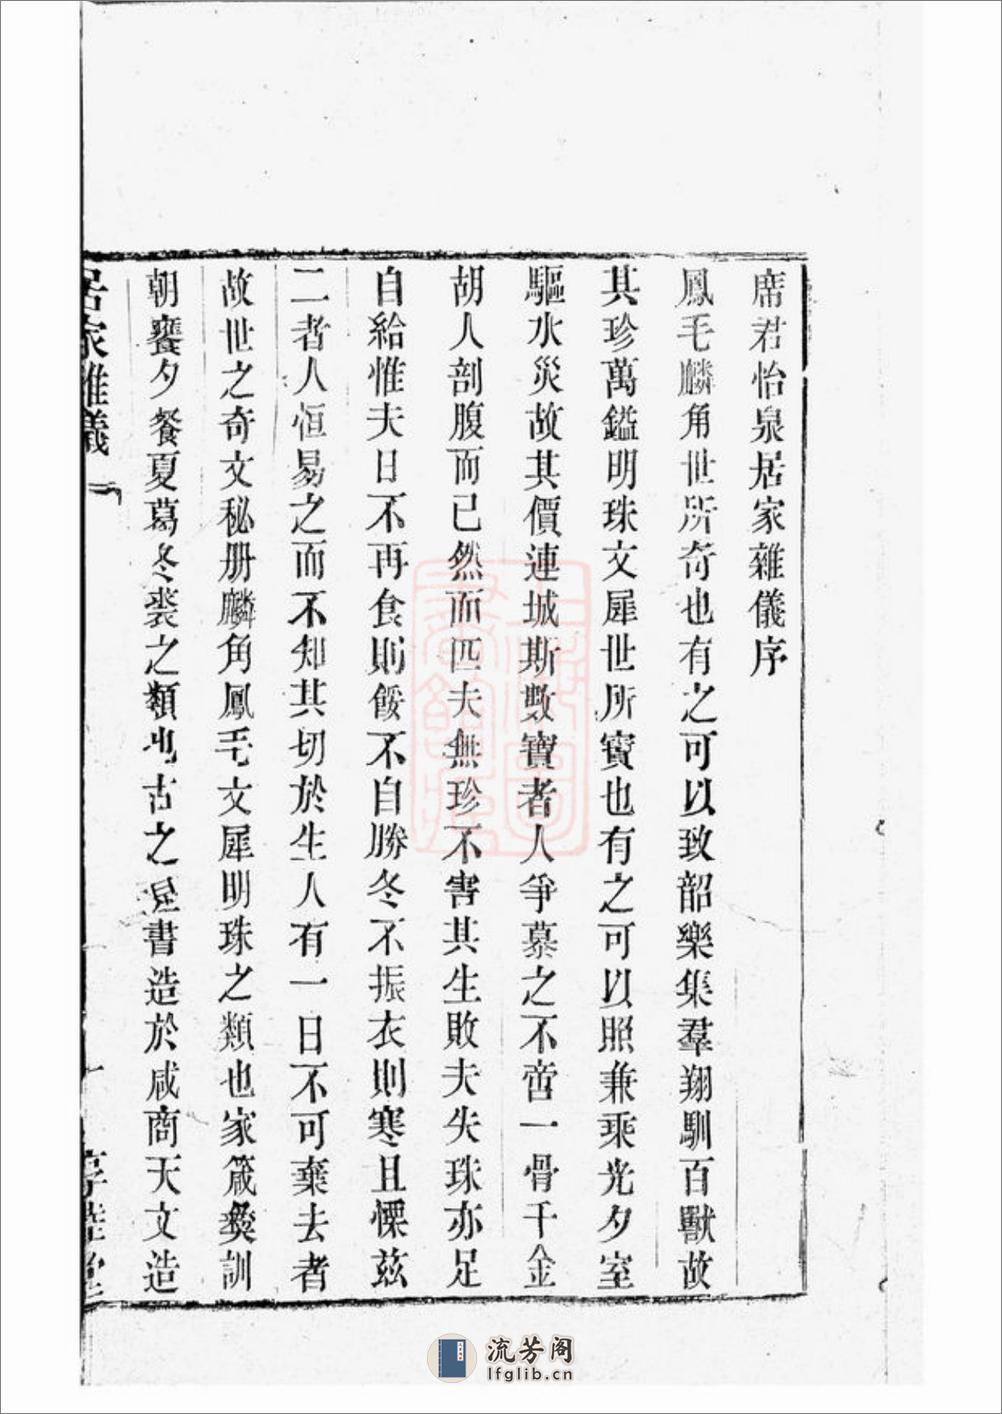 席君怡泉居家雜儀序
鳳毛麟角世所奇也有之可以致韶樂集羣翔馴百獸故
其珍萬鎰明珠文犀世所寳也有之可以照兼乘光夕室
驅水災故其價連城斯數寳者人爭慕之不啻一骨千金
胡人剖腹而已然而匹夫無珍不害其生敗夫失珠亦足
自給惟夫日不再食則餒不自勝冬不振衣則寒且慄茲
二者人恒易之而不知其切於生人有一日不可棄去者
故世之奇文秘册麟角鳳毛文犀明珠之類也家箴彜訓
朝饔夕餐夏葛冬裘之類也古之書造於咸商天文造
居家雜儀
一
堂
流芳阁
lfglib.cn